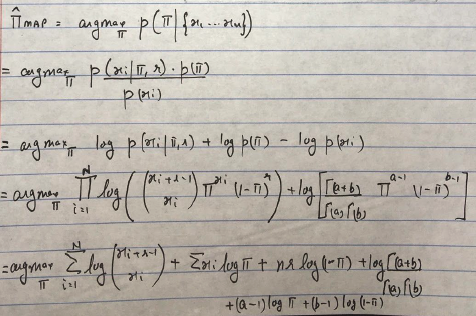 π̂ MAP = argmax_π p(π | {x₁ ... xₙ})
= argmax_π p(xᵢ | π, r) · p(π) / p(xᵢ)
= argmax_π log p(xᵢ | π, r) + log p(π) − log p(xᵢ)
= argmax_π ∏_{i=1}^{N} log( (xᵢ+r−1 choose xᵢ) π^{xᵢ} (1−π)^r ) + log[ Γ(a+b) / Γ(a) Γ(b) π^{a−1} (1−π)^{b−1} ]
= argmax_π Σ_{i=1}^{N} log (xᵢ+r−1 choose xᵢ) + Σxᵢ log π + nr log(1−π) + log Γ(a+b) / Γ(a) Γ(b)
+ (a−1) log π + (b−1) log(1−π)